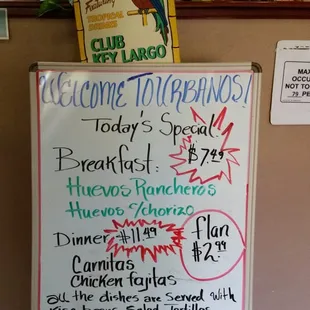 Featuring
TROPICAL
DRINKS
CLUB
KEY LARGO
WELCOME TO URBANOS!
Today's Special.
Breakfast: $7.49
Huevos Rancheros
Huevos c/chorizo
Dinner $11.49
Flan
$2.99
Carnitas
Chicken fajitas
all the dishes are Served with
Salad Tortillas
MAX
OCCU
NOT TO
79 PE